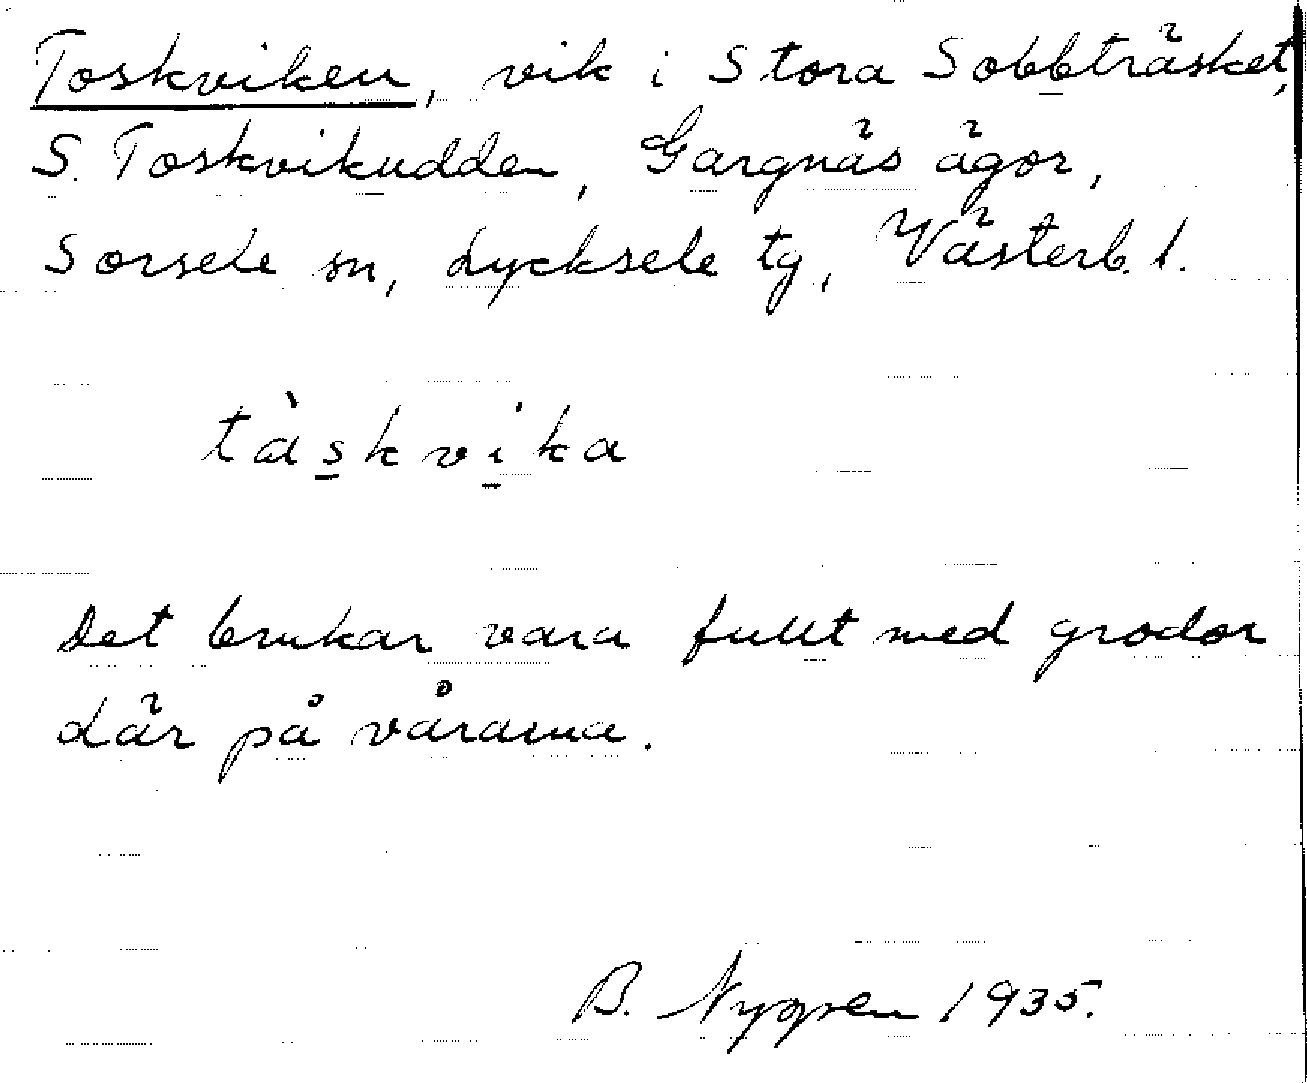 Toskviken, vik i Stora Sobbträsket,
S. Toskvikudden, Gargnäs ägor,
Sorsele sn, Lycksele tg, Västerb. l.
tàskvika
Det brukar vara fullt med grodor
där på vårarna.
B. Nygren 1935.